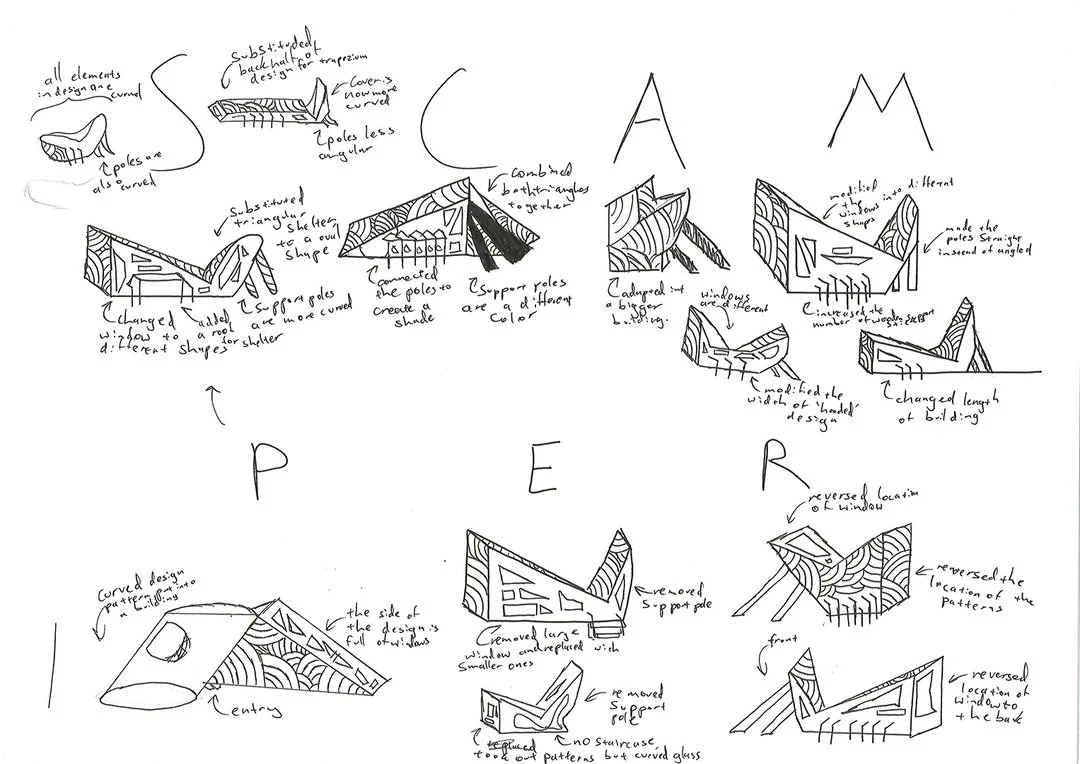 S C A M
all elements
in design are curved
poles are
also curved
Substituted
back half of
design for trapezium
Cover is
now more
curved
poles less
angular
Substituted
triangular
shelter
to a oval
shape
Changed
window to
different shapes
added
a roof
for shelter
Support poles
are more curved
combined
both triangles
together
connected
the poles to
create a
shade
Support poles
are a different
color
adapted int
a bigger
building.
windows
are different
modified the
width of 'hooded'
design
modified
the
windows into different
shapes
made the
poles straight
instead of angled
increased the
number of wooden support
sticks
changed length
of building
P E R
Curved design
pattern put into
a building
the side of
the design is
full of windows
entry
removed
support pole
removed large
window and replaced with
smaller ones
removed
support
pole
no staircase,
took out patterns but curved glass
reversed location
of window
reversed the
location of the
patterns
front
reversed
location of
window to
the back